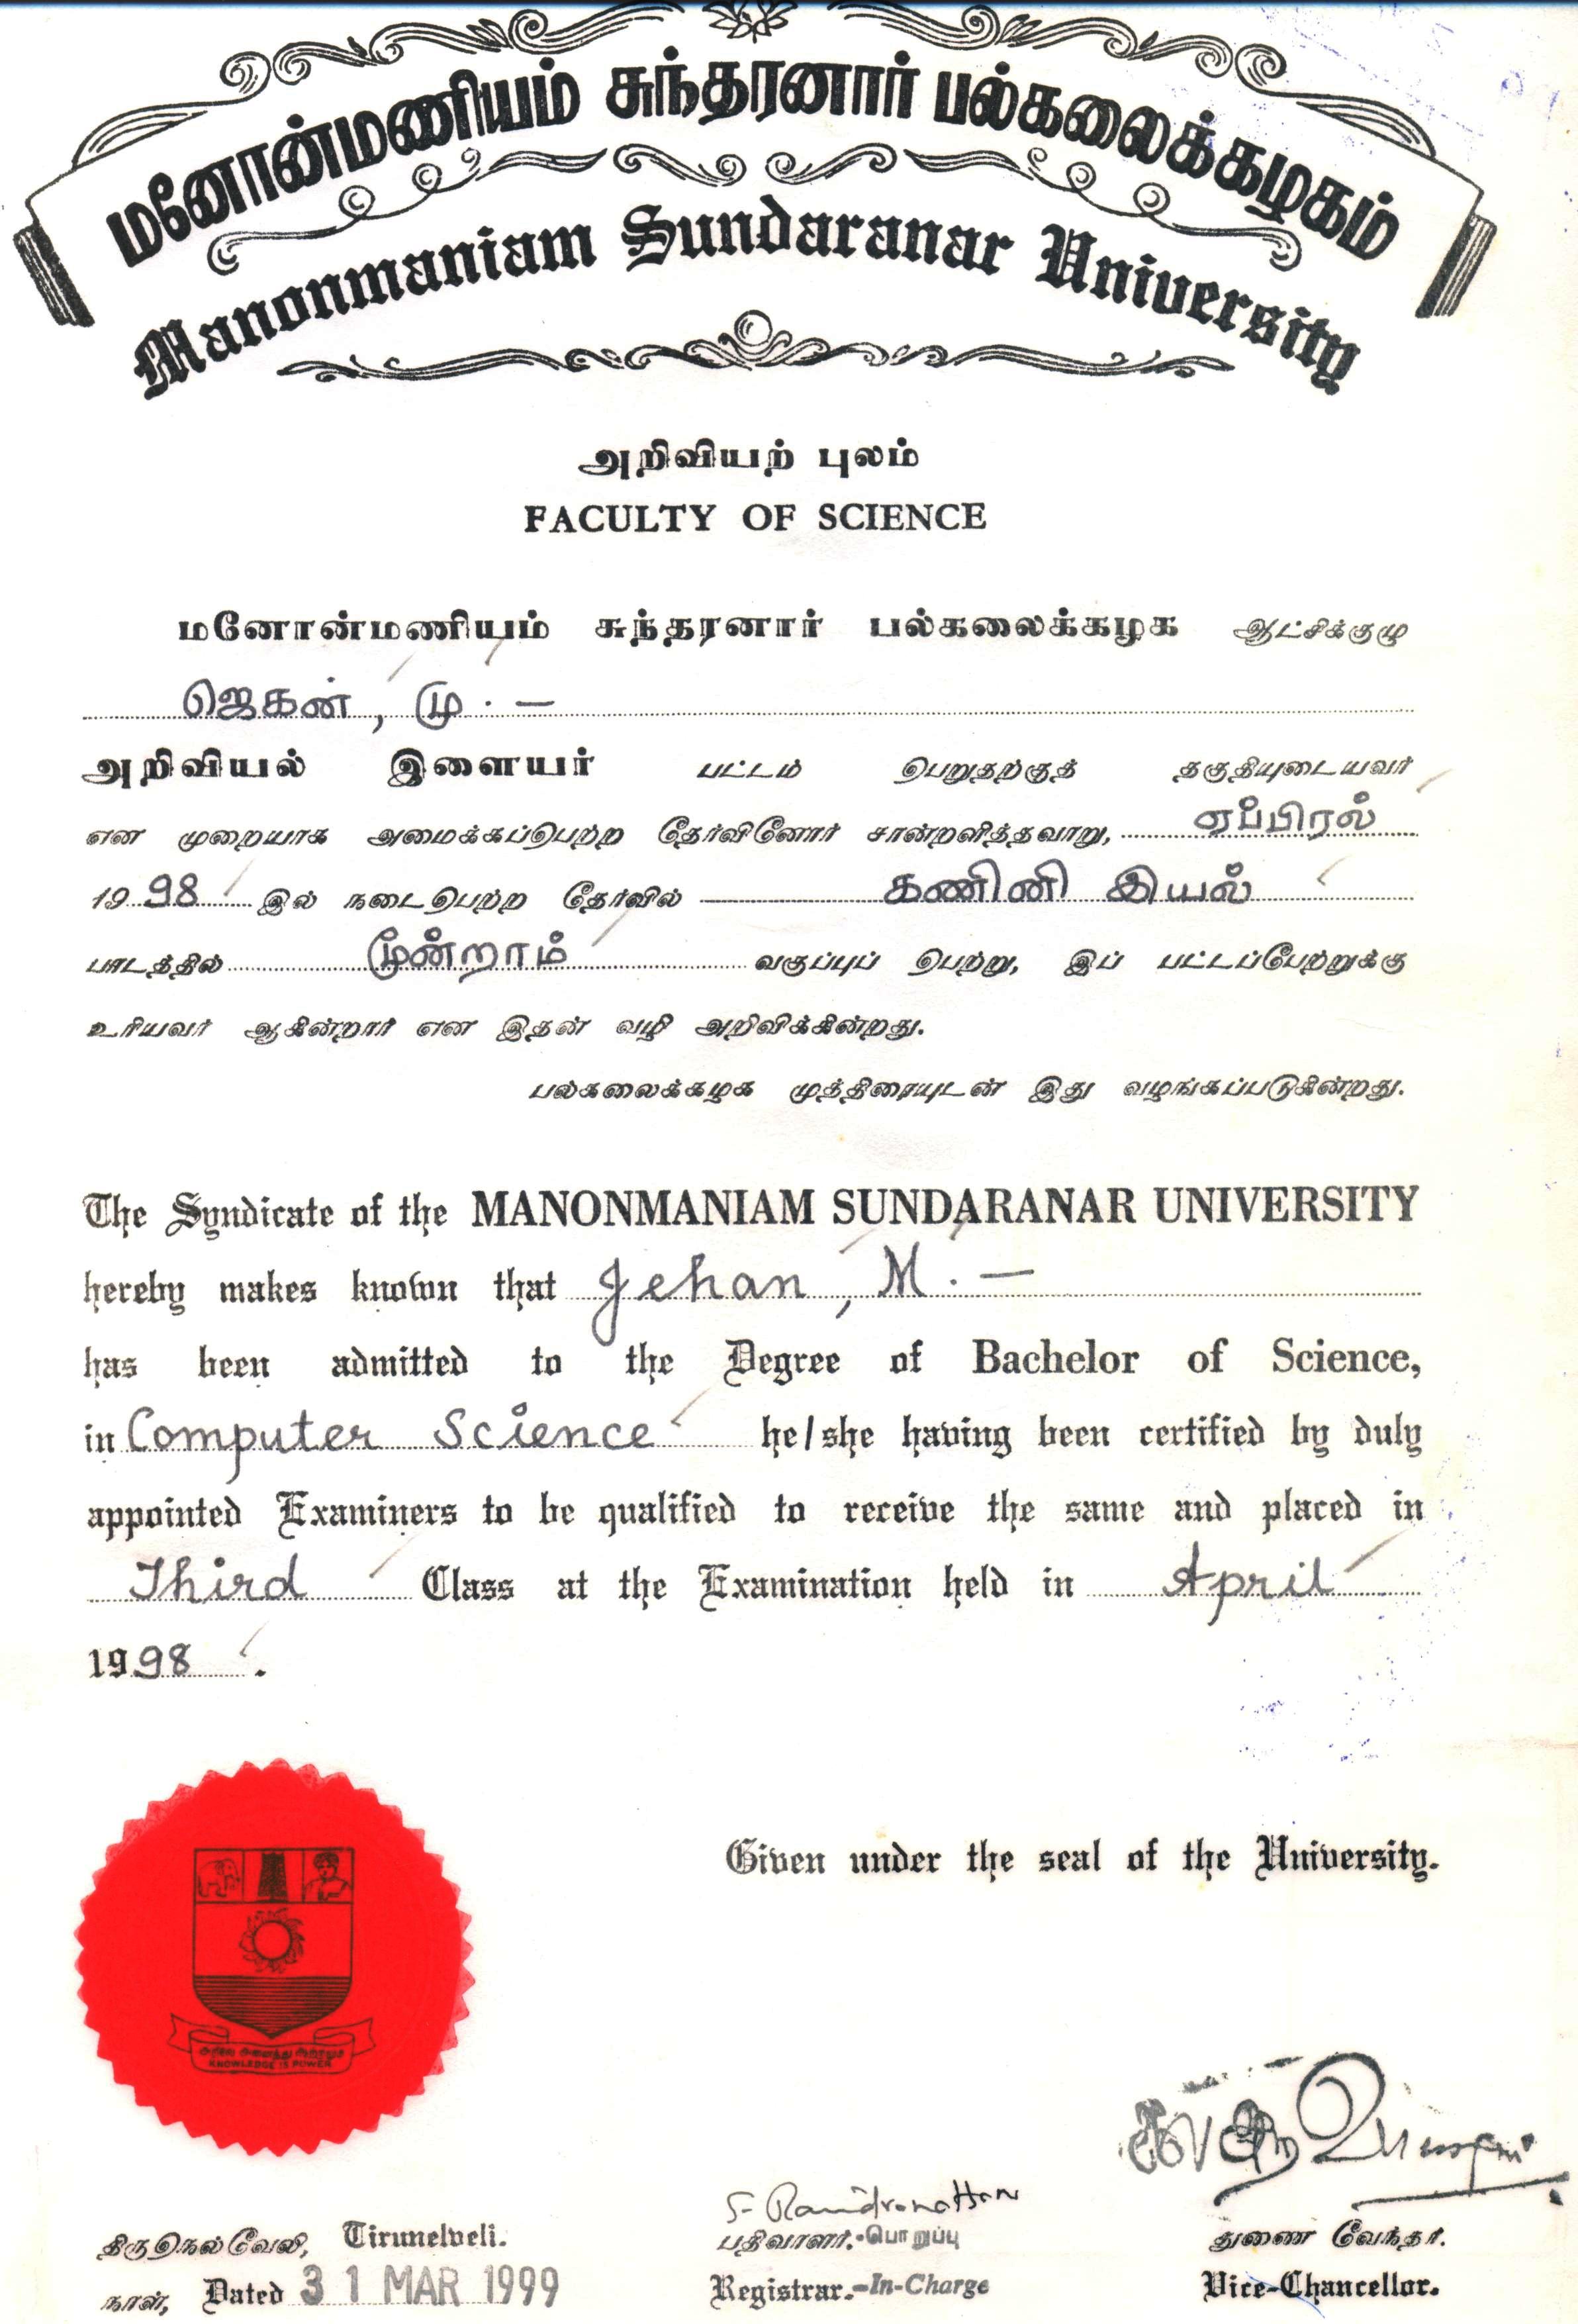 மனோன்மணியம் சுந்தரனார் பல்கலைக்கழகம்
Manonmaniam Sundaranar University
அறிவியற் புலம்
FACULTY OF SCIENCE
மனோன்மணியம் சுந்தரனார் பல்கலைக்கழக ஆட்சிக்குழு
ஜெகன், மு. —
அறிவியல் இளையர் பட்டம் பெறுதற்குத் தகுதியுடையவர்
என முறையாக அமைக்கப்பெற்ற தேர்வினோர் சான்றளித்தவாறு, ஏப்பிரல்
1998 இல் நடைபெற்ற தேர்வில் கணினி இயல்
பாடத்தில் மூன்றாம் வகுப்புப் பெற்று, இப் பட்டப்பேற்றுக்கு
உரியவர் ஆகின்றார் என இதன் வழி அறிவிக்கின்றது.
பல்கலைக்கழக முத்திரையுடன் இது வழங்கப்படுகின்றது.
The Syndicate of the MANONMANIAM SUNDARANAR UNIVERSITY
hereby makes known that Jehan, M. —
has been admitted to the Degree of Bachelor of Science,
in Computer Science he/she having been certified by duly
appointed Examiners to be qualified to receive the same and placed in
Third Class at the Examination held in April
1998.
Given under the seal of the University.
KNOWLEDGE IS POWER
S. Ravindranathan
திருநெல்வேலி, Tirunelveli.
பதிவாளர்.-பொறுப்பு
துணை வேந்தர்.
நாள், Dated 31 MAR 1999
Registrar.-In-Charge
Vice-Chancellor.